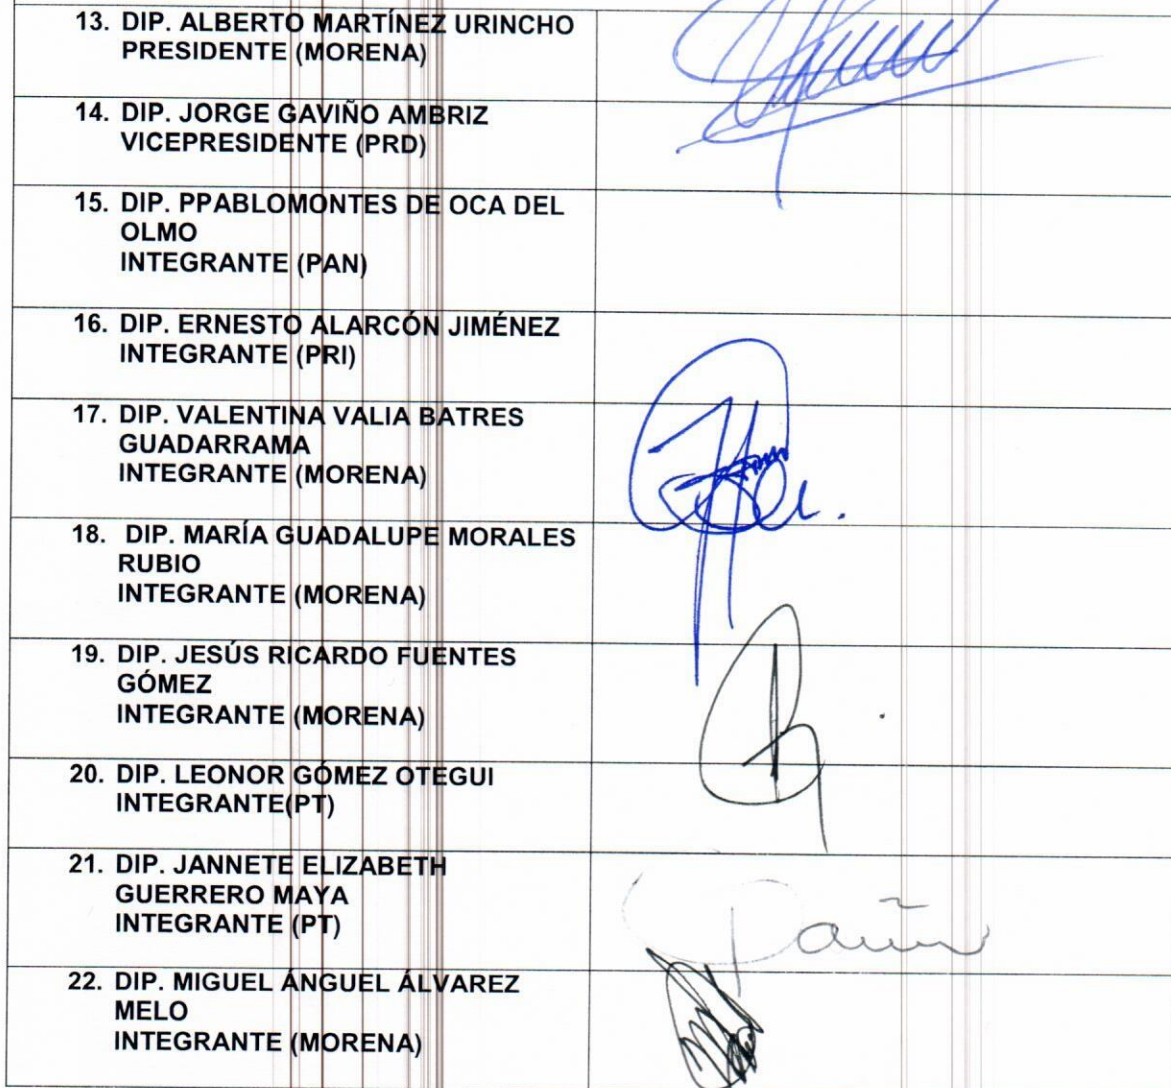 13. DIP. ALBERTO MARTÍNEZ URINCHO
PRESIDENTE (MORENA)
14. DIP. JORGE GAVIÑO AMBRIZ
VICEPRESIDENTE (PRD)
15. DIP. PPABLOMONTES DE OCA DEL
OLMO
INTEGRANTE (PAN)
16. DIP. ERNESTO ALARCÓN JIMÉNEZ
INTEGRANTE (PRI)
17. DIP. VALENTINA VALIA BATRES
GUADARRAMA
INTEGRANTE (MORENA)
18. DIP. MARÍA GUADALUPE MORALES
RUBIO
INTEGRANTE (MORENA)
19. DIP. JESÚS RICARDO FUENTES
GÓMEZ
INTEGRANTE (MORENA)
20. DIP. LEONOR GÓMEZ OTEGUI
INTEGRANTE(PT)
21. DIP. JANNETE ELIZABETH
GUERRERO MAYA
INTEGRANTE (PT)
22. DIP. MIGUEL ÁNGUEL ÁLVAREZ
MELO
INTEGRANTE (MORENA)